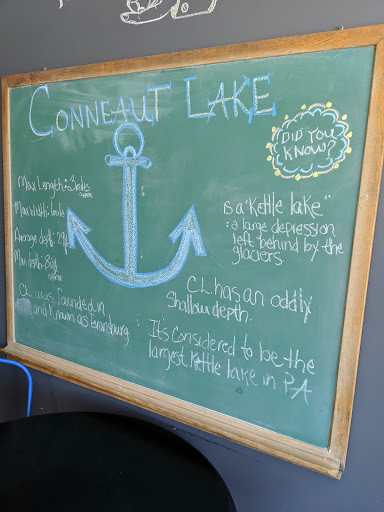 CONNEAUT LAKE
DID YOU
KNOW?
Max Length: 3 miles
approx
Max Width: 1 mile
Average depth: 29ft
Max depth: 
approx
is a "Kettle lake"
: a large depression
left behind by the
glaciers
CL has an oddly
Shallow depth.
CL was founded in
and Known as
It's Considered to be the
largest Kettle lake in PA